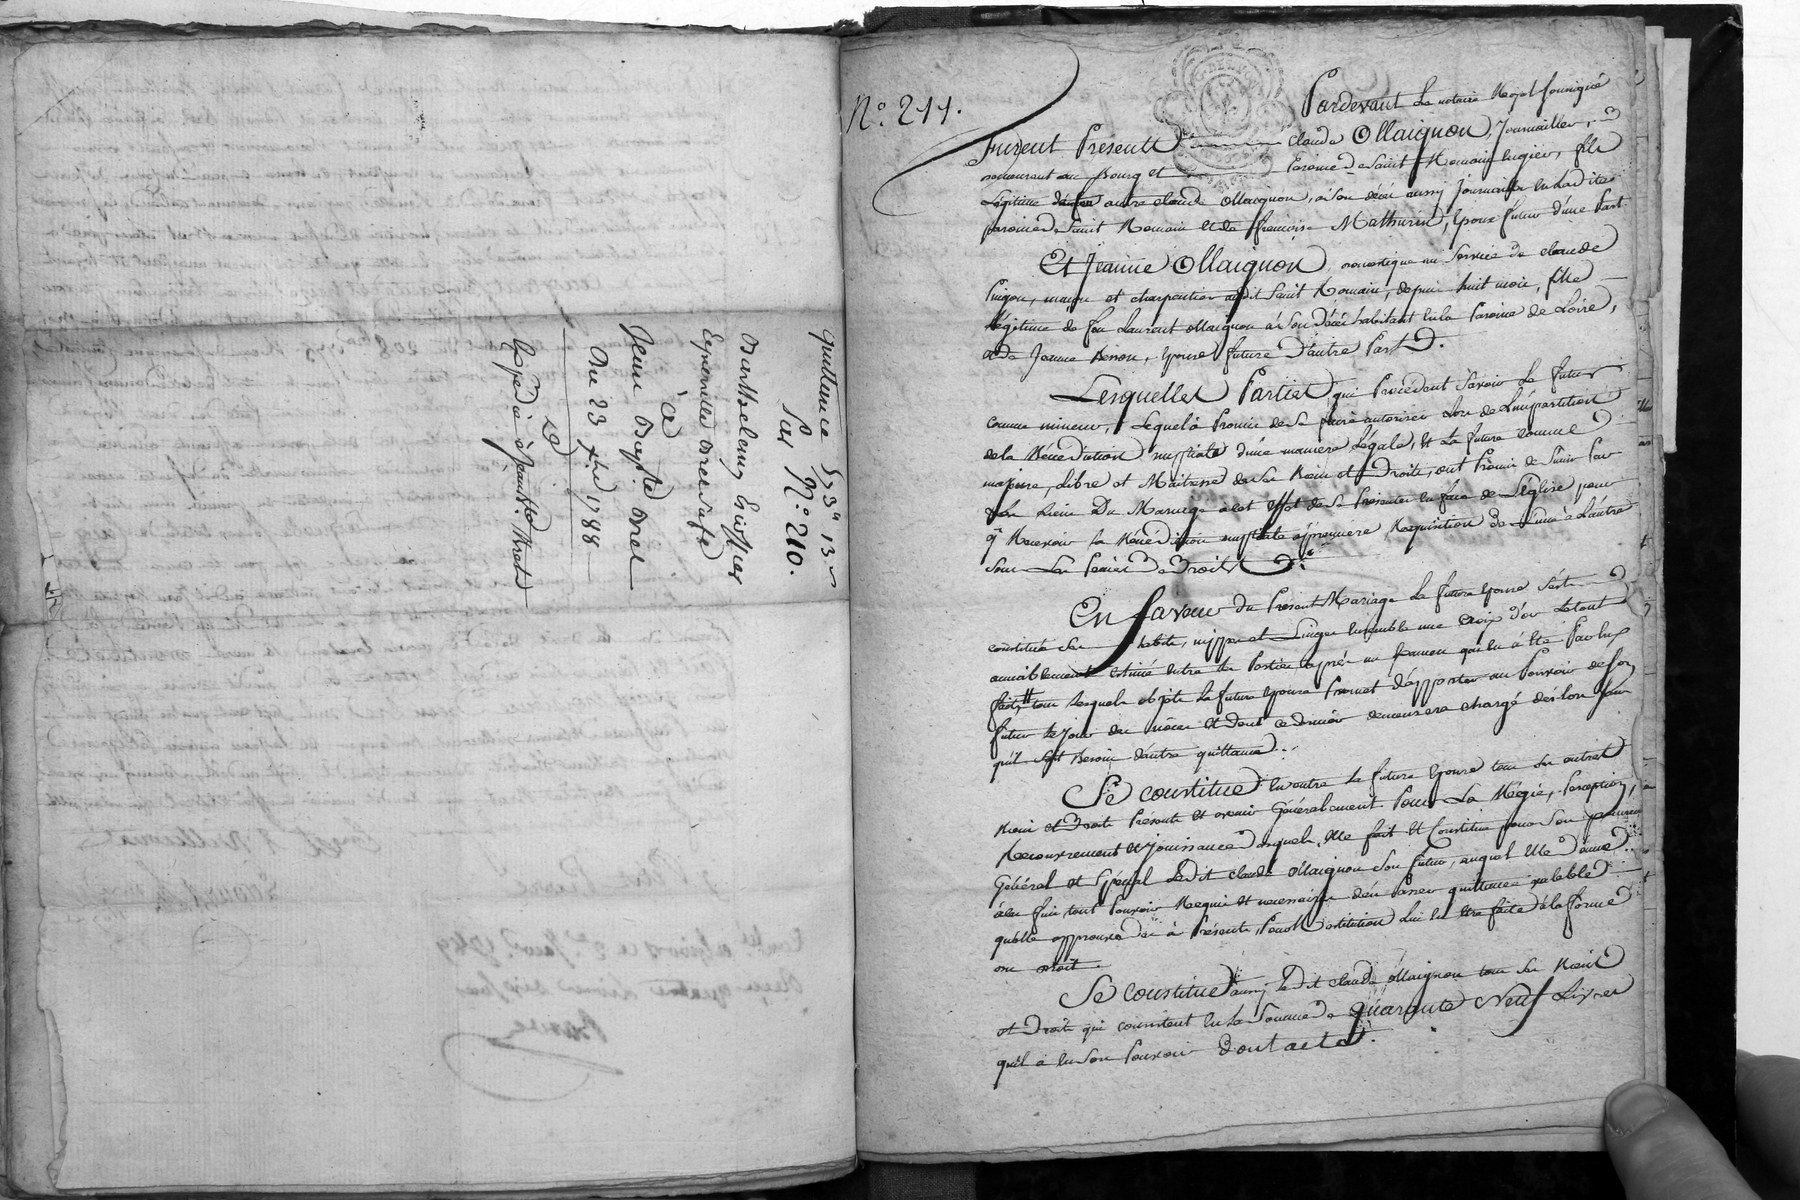 quittance 573# 13s
Par N°. 210.
Barthelemy
à
Jean Bapte. Morel
Du 23 xbre 1788
Expédié à Jean Bte. Morel
N°. 211.
Pardevant Le notaire Royal soussigné
Furent Présents Claude Ollaignon, Journaillier,
demeurant au Bourg et Paroisse de Saint Romain Engiers, fils
Légitime de feu autre Claude Ollaignon, à son décès aussy Journaillier en ladite
paroisse de Saint Romain et de françoise Mathurin, Epoux futur d'une Part
Et Jeanne Ollaignon, domestique au Service de Claude
Pingon, maçon et charpentier audit Saint Romain, depuis huit mois, fille
Légitime de feu Laurent Ollaignon à Son décès habitant en la Paroisse de Loire,
et de Jeanne Besson, Epouse future d'autre Part.
Lesquelles Parties qui Procedent Savoir Le futur
comme mineur, Lequel a Promis de Se faire autoriser Lors de L'impartition
de la Bénédiction nuptiale d'une maniere Légale, Et La future comme
majeure, Libre et Maitresse de Ses Biens et Droits, ont Promis de S'unir Par
Les Liens Du Mariage à cet effet de Se Presenter en face de L'Eglise pour
y Recevoir la Bénédiction nuptiale à premiere Requisition de L'une à L'autre
Sous Les Peines de Droit.
En faveur du Présent Mariage La future Epouse S'est
constitué Ses habits, nippes et Linges Ensemble une Croix d'or Le tout
amiablement estimé entre les Parties après un Examen qui en à été Par Eux
fait, tous Lesquels objets La future Epouse Promet d'apporter au Pouvoir de Son
futur le jour des nôces et dont ce dernier demeurera chargé dès lors sans
qu'il soit Besoin d'autre quittance.
Se constitue en outre la future Epouse tous Ses autres
Biens et Droits Présents et avenir Généralement Pour La Régie, Perception,
Recouvrement et Jouissance desquels, Elle fait Et Constitue pour Son procureur
Général et Spécial Ledit Claude Ollaignon Son futur, auquel Elle donne
à ces fins tout Pouvoir Requis et necessaire d'en Passer quittance valable
qu'elle approuve dès à Présent, Sauf Restitution Lui en être faite à la forme
du droit.
Se constitue aussy Ledit Claude Ollaignon tous Ses Biens
et Droits qui consistent en la Somme de Quarante Neuf Livres
qu'il a en Son Pouvoir Dont acte.